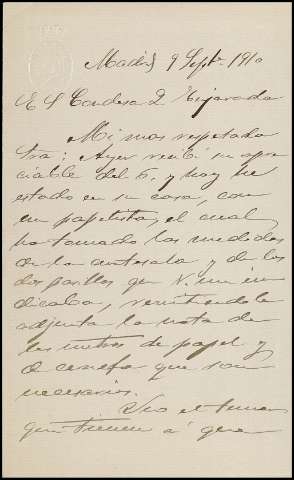 Madrid 9 Septe. 1910
E. S. Condesa de Tejarada
Mi mas respetada
Sra: Ayer recibí su apre
ciable del 6. y hoy he
estado en su casa, con
un papelista, el cual
ha tomado las medidas
de la antesala y de los
dos pasillos que V. me in
dicaba, remitiendole
adjunta la nota de
los metros de papel y
de cenefa que son
necesarios.
Veo el
que tienen á que